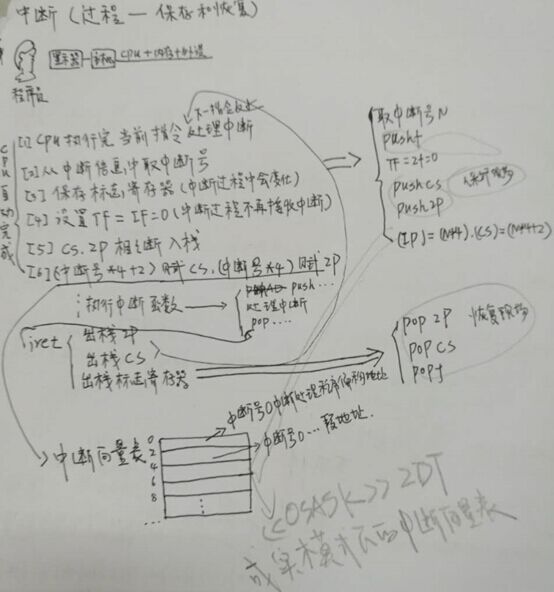 中断(过程—保存和恢复)
显示器
cpu+内存+外设
程序员
CPU自动完成
下一指令
[1] CPU执行完当前指令处理中断
[2] 从中断信息中取中断号
[3] 保存标志寄存器(中断过程中会变化)
[4] 设置TF=IF=0(中断过程不再接收中断)
[5] CS.IP相继入栈
[6] (中断号*4+2)赋CS,(中断号*4)赋IP
取中断号N
pushf
TF=IF=0
push CS
保护现场
push IP
(IP)=(N*4).(CS)=(N*4+2)
执行中断函数
push...
处理中断
pop....
iret
出栈IP
出栈CS
出栈标志寄存器
pop IP
恢复现场
pop CS
popf
中断号0中断处理程序偏移地址
中断号0...段地址.
中断向量表
0
2
4
6
8
<<OSASK>> IDT
或实模式下的中断向量表